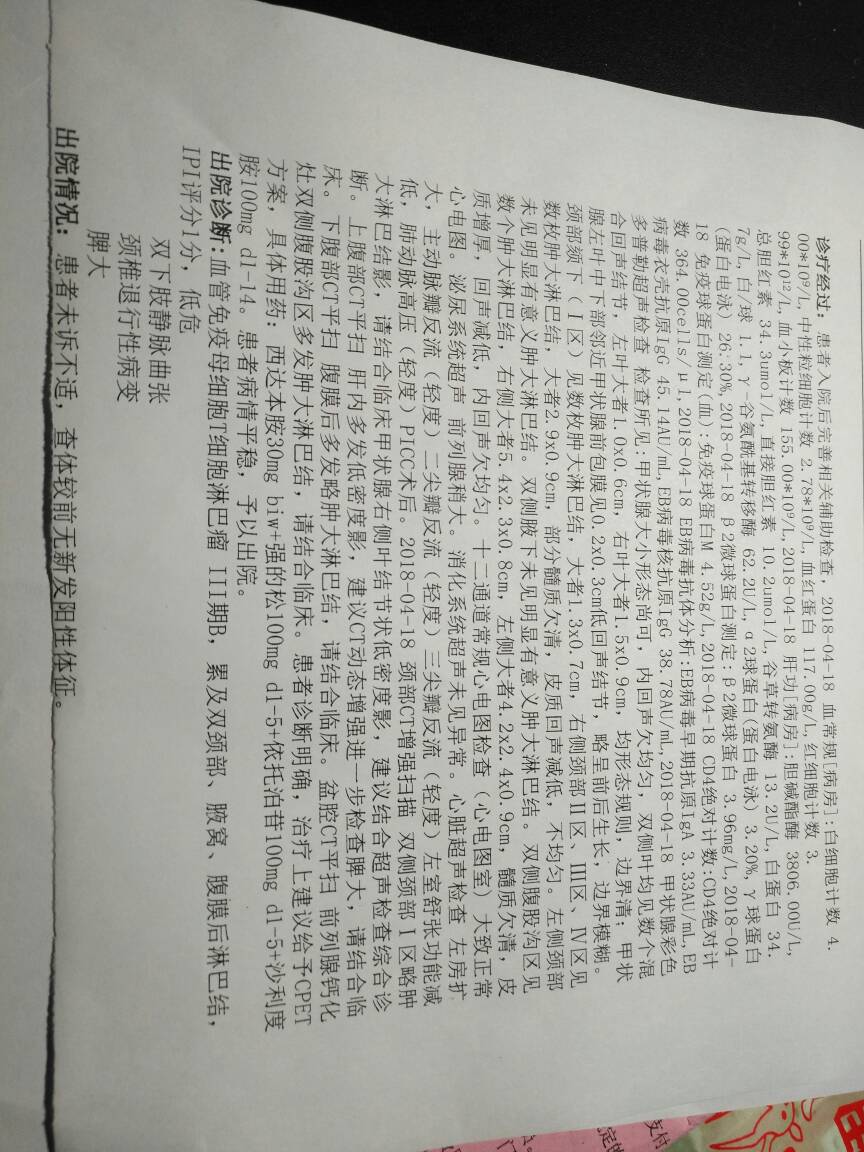 诊疗经过：患者入院后完善相关辅助检查，2018-04-18 血常规[病房]:白细胞计数 4.
00*10⁹/L,中性粒细胞计数 2.78*10⁹/L,血红蛋白 117.00g/L,红细胞计数 3.
99*10¹²/L,血小板计数 155.00*10⁹/L,2018-04-18 肝功[病房]:胆碱酯酶 3806.00U/L,
总胆红素 34.3umol/L,直接胆红素 10.2umol/L,谷草转氨酶 13.2U/L,白蛋白 34.
7g/L,白/球 1.1,γ-谷氨酰基转移酶 62.2U/L,α2球蛋白(蛋白电泳) 3.20%,γ球蛋白
(蛋白电泳) 26.30%,2018-04-18 β2微球蛋白测定:β2微球蛋白 3.96mg/L,2018-04-
18 免疫球蛋白测定(血):免疫球蛋白M 4.52g/L,2018-04-18 CD4绝对计数:CD4绝对计
数 364.00cells/μl,2018-04-18 EB病毒抗体分析:EB病毒早期抗原IgA 3.33AU/mL,EB
病毒衣壳抗原IgG 45.14AU/mL,EB病毒核抗原IgG 38.78AU/mL,2018-04-18 甲状腺彩色
多普勒超声检查 检查所见:甲状腺大小形态尚可，内回声欠均匀，双侧叶均见数个混
合回声结节，左叶大者1.0x0.6cm，右叶大者1.5x0.9cm，均形态规则，边界清；甲状
腺左叶中下部邻近甲状腺前包膜见0.2x0.3cm低回声结节，略呈前后生长，边界模糊。
颈部颏下（Ⅰ区）见数枚肿大淋巴结，大者1.3x0.7cm，右侧颈部Ⅱ区、Ⅲ区、Ⅳ区见
数枚肿大淋巴结，大者2.9x0.9cm，部分髓质欠清，皮质回声减低，不均匀。左侧颈部
未见明显有意义肿大淋巴结。双侧腋下未见明显有意义肿大淋巴结。双侧腹股沟区见
数个肿大淋巴结，右侧大者5.4x2.3x0.8cm，左侧大者4.2x2.4x0.9cm，髓质欠清，皮
质增厚，回声减低，内回声欠均匀。十二通道常规心电图检查（心电图室）大致正常
心电图。泌尿系统超声 前列腺稍大。消化系统超声未见异常。心脏超声检查 左房扩
大，主动脉瓣反流（轻度）二尖瓣反流（轻度）三尖瓣反流（轻度）左室舒张功能减
低，肺动脉高压（轻度）PICC术后。2018-04-18 颈部CT增强扫描 双侧颈部Ⅰ区略肿
大淋巴结影，请结合临床甲状腺右侧叶结节状低密度影，建议结合超声检查综合诊
断。上腹部CT平扫 肝内多发低密度影，建议CT动态增强进一步检查脾大，请结合临
床。下腹部CT平扫 腹膜后多发略肿大淋巴结，请结合临床。盆腔CT平扫 前列腺钙化
灶双侧腹股沟区多发肿大淋巴结，请结合临床。患者诊断明确，治疗上建议给予CPET
方案，具体用药：西达本胺30mg biw+强的松100mg d1-5+依托泊苷100mg d1-5+沙利度
胺100mg d1-14。患者病情平稳，予以出院。
出院诊断:血管免疫母细胞T细胞淋巴瘤 III期B，累及双颈部、腋窝、腹膜后淋巴结，
IPI评分1分，低危
双下肢静脉曲张
颈椎退行性病变
脾大
出院情况：患者未诉不适，查体较前无新发阳性体征。
支付